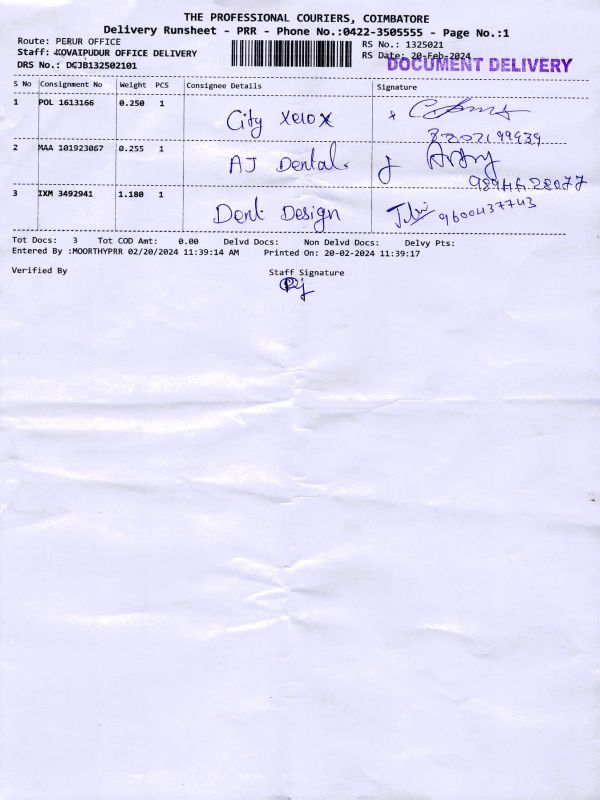 THE PROFESSIONAL COURIERS, COIMBATORE
Delivery Runsheet - PRR - Phone No.:0422-3505555 - Page No.:1
Route: PERUR OFFICE
RS No.: 1325021
Staff: KOVAIPUDUR OFFICE DELIVERY
RS Date: 20-Feb-2024
DRS No.: DCJB132502101
DOCUMENT DELIVERY
S No Consignment No Weight PCS Consignee Details Signature
1 POL 1613166 0.250 1 City xerox
2 MAA 101923067 0.255 1 AJ Dental.
98946 28077
3 IXM 3492941 1.180 1 Dent Design 9600437743
Tot Docs: 3 Tot COD Amt: 0.00 Delvd Docs: Non Delvd Docs: Delvy Pts:
Entered By :MOORTHYPRR 02/20/2024 11:39:14 AM Printed On: 20-02-2024 11:39:17
Verified By Staff Signature